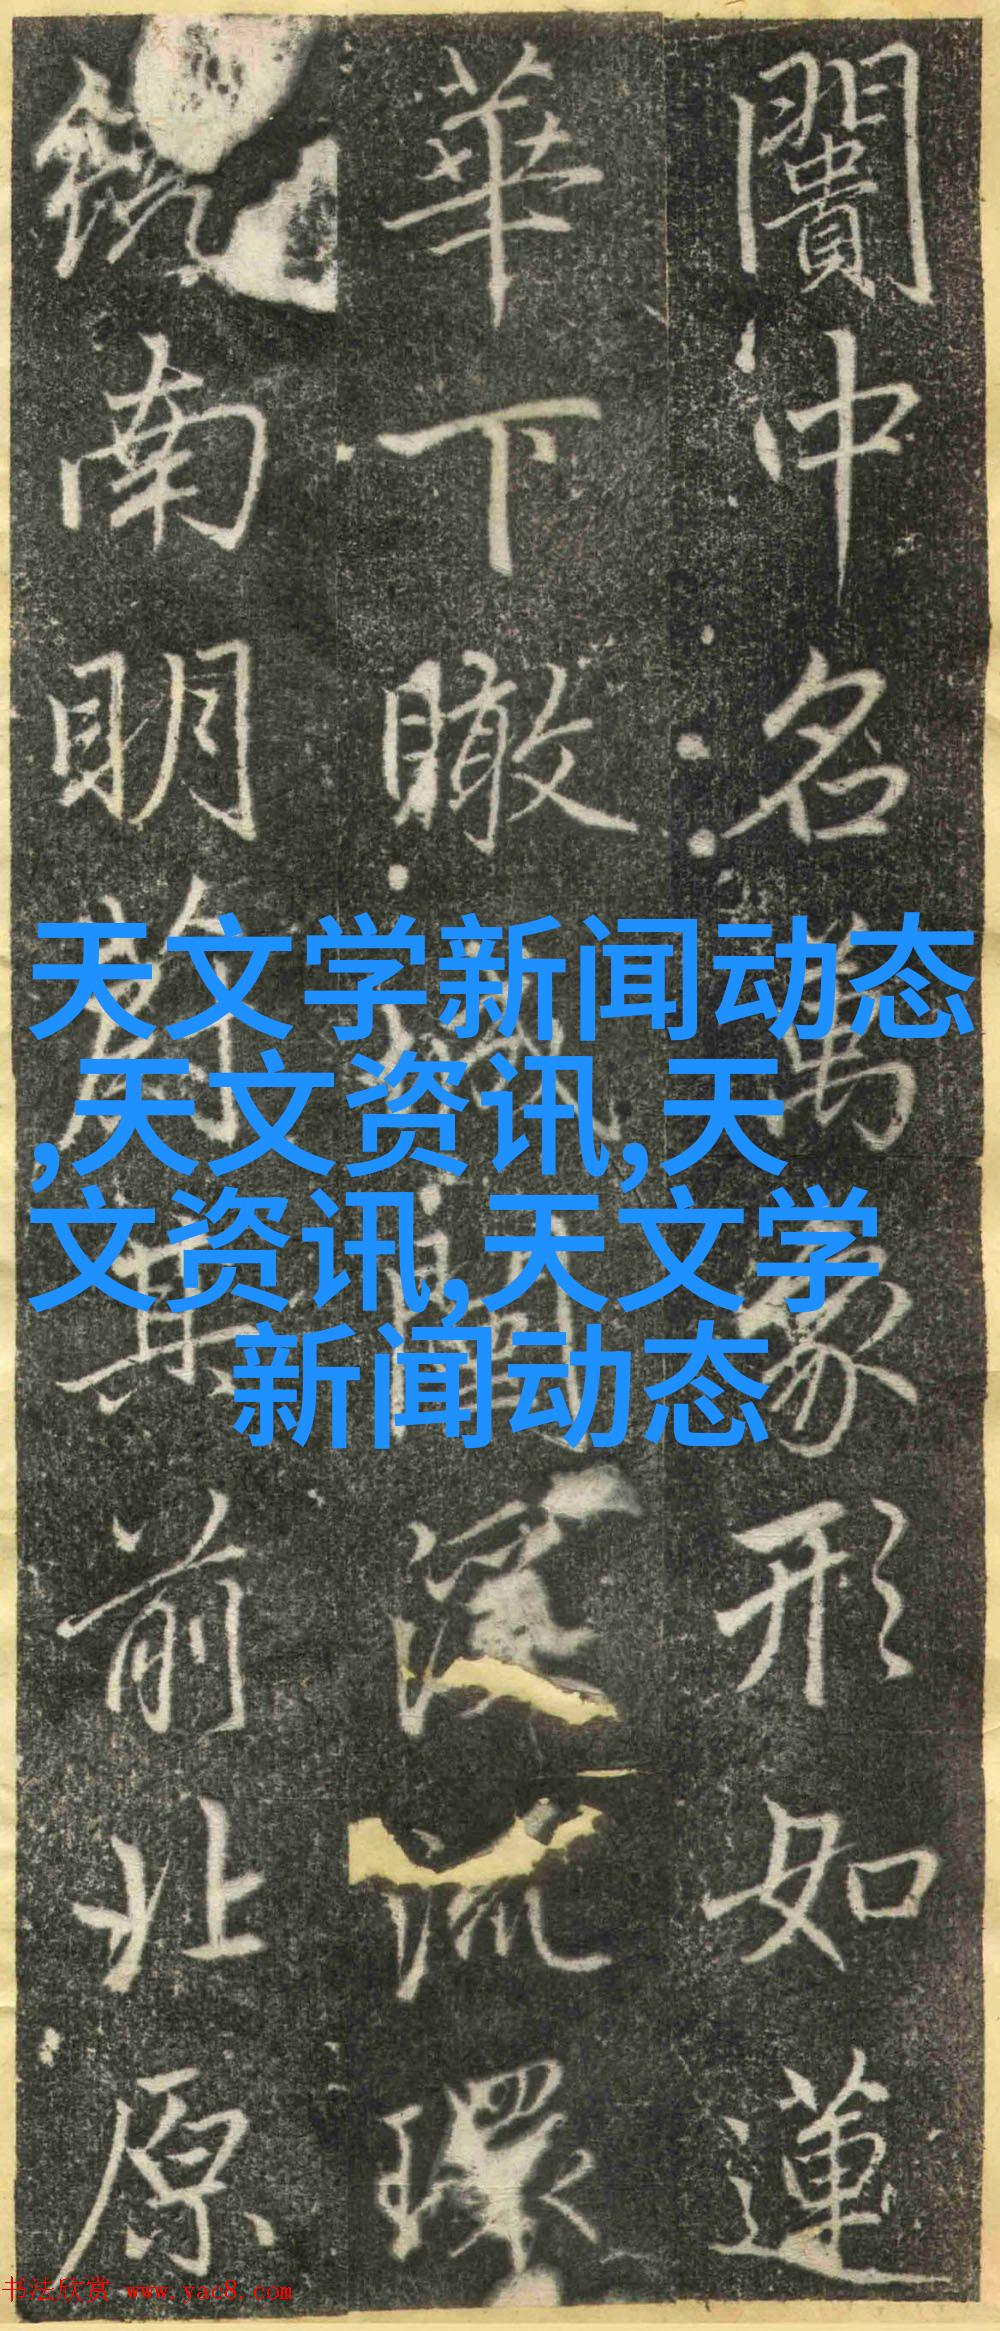 闠中名萬象形如蓮
華下瞰深流環
南明其前北原
天文学新闻动态
,天文资讯,天
文资讯,天文学
新闻动态
书法欣赏 www.yac8.com